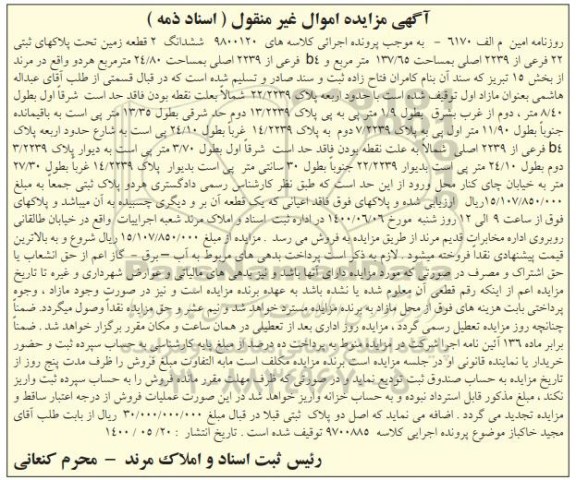 آگهی مزایده اموال غیر منقول ( اسناد ذمه )
روزنامه امین م الف ۶۱۷۰ - به موجب پرونده اجرائی کلاسه های ۹۸۰۰۱۲۰ ششدانگ ۲ قطعه زمین تحت پلاکهای ثبتی
۲۲ فرعی از ۲۲۳۹ اصلی بمساحت ۱۳۷/۶۵ متر مربع و b۴ فرعی از ۲۲۳۹ اصلی بمساحت ۲۴/۸۰ مترمربع هردو واقع در مرند
از بخش ۱۵ تبریز که سند آن بنام کامران فتاح زاده ثبت و سند صادر و تسلیم شده است که در قبال قسمتی از طلب آقای عبداله
هاشمی بعنوان مازاد اول توقیف شده است با حدود اربعه پلاک ۲۲/۲۲۳۹ شمالاً بعلت نقطه بودن فاقد حد است شرقا اول بطول
۸/۴۰ متر ، دوم از غرب بشرق بطول ۱/۰۹ متر پی به پی پلاک ۱۳/۲۲۳۹ دوم حد شرقی بطول ۱۳/۳۵ متر پی است به باقیمانده
جنوباً بطول ۱۱/۹۰ متر اول پی به پلاک ۷/۲۲۳۹ دوم به پلاک ۱۴/۲۲۳۹ غرباً بطول ۲۴/۱۰ پی است به شارع حدود اربعه پلاک
b۴ فرعی از ۲۲۳۹ اصلی شمالاً به علت نقطه بودن فاقد حد است شرقا اول بطول ۳/۷۰ متر پی است به دیوار پلاک ۳/۲۲۳۹
دوم بطول ۲۴/۱۰ متر پی است بدیوار ۲۲/۲۲۳۹ جنوباً بطول ۳۰ سانتی متر پی است بدیوار پلاک ۱۴/۲۲۳۹ غرباً بطول ۲۷/۳۰
متر به خیابان چای کنار محل ورود از این حد است که طبق نظر کارشناس رسمی دادگستری هردو پلاک ثبتی جمعاً به مبلغ
۱۵/۱۰۷/۸۵۰/۰۰۰ریال ارزیابی شده و پلاکهای فوق فاقد اعیانی که یک قطعه آن بر و دیگری چسبیده به آن میباشد و پلاکهای
فوق از ساعت ۹ الی ۱۲ روز شنبه مورخ ۱۴۰۰/۰۶/۰۶ در اداره ثبت اسناد و املاک مرند شعبه اجراییات واقع در خیابان طالقانی
روبروی اداره مخابرات قدیم مرند از طریق مزایده به فروش می رسد . مزایده از مبلغ ۱۵/۱۰۷/۸۵۰/۰۰۰ ریال شروع و به بالاترین
قیمت پیشنهادی نقداً فروخته میشود . لازم به ذکر است پرداخت بدهی های مربوط به آب – برق – گاز اعم از حق انشعاب یا
حق اشتراک و مصرف در صورتی که مورد مزایده دارای آنها باشد و نیز بدهی های مالیاتی و عوارض شهرداری و غیره تا تاریخ
مزایده اعم از اینکه رقم قطعی آن معلوم شده یا نشده باشد به عهده برنده مزایده است و نیز در صورت وجود مازاد ، وجوه
پرداختی بابت هزینه های فوق از محل مازاد به برنده مزایده مسترد خواهد شد و نیم عشر و حق مزایده نقداً وصول میگردد. ضمناً
چنانچه روز مزایده تعطیل رسمی گردد ، مزایده روز اداری بعد از تعطیلی در همان ساعت و مکان مقرر برگزار خواهد شد . ضمناً
برابر ماده ۱۳۶ آئین نامه اجرا شرکت در مزایده منوط به پرداخت ده درصد از مبلغ پایه کارشناسی به حساب سپرده ثبت و حضور
خریدار یا نماینده قانونی او در جلسه مزایده است برنده مزایده مکلف است مابه التفاوت مبلغ فروش را ظرف مدت پنج روز از
تاریخ مزایده به حساب صندوق ثبت تودیع نماید و در صورتی که ظرف مهلت مقرر مانده فروش را به حساب سپرده ثبت واریز
نکند ، مبلغ مذکور قابل استرداد نبوده و به حساب خزانه واریز خواهد شد در این صورت عملیات فروش از درجه اعتبار ساقط و
مزایده تجدید می گردد . اضافه می نماید که اصل دو پلاک ثبتی قبلا در قبال مبلغ ۳۰/۰۰۰/۰۰۰/۰۰۰ ریال از بابت طلب آقای
مجید خاکباز موضوع پرونده اجرایی کلاسه ۹۷۰۰۸۸۵ توقیف شده است . تاریخ انتشار : ۲۰ / ۰۵ / ۱۴۰۰
رئیس ثبت اسناد و املاک مرند – محرم کنعانی